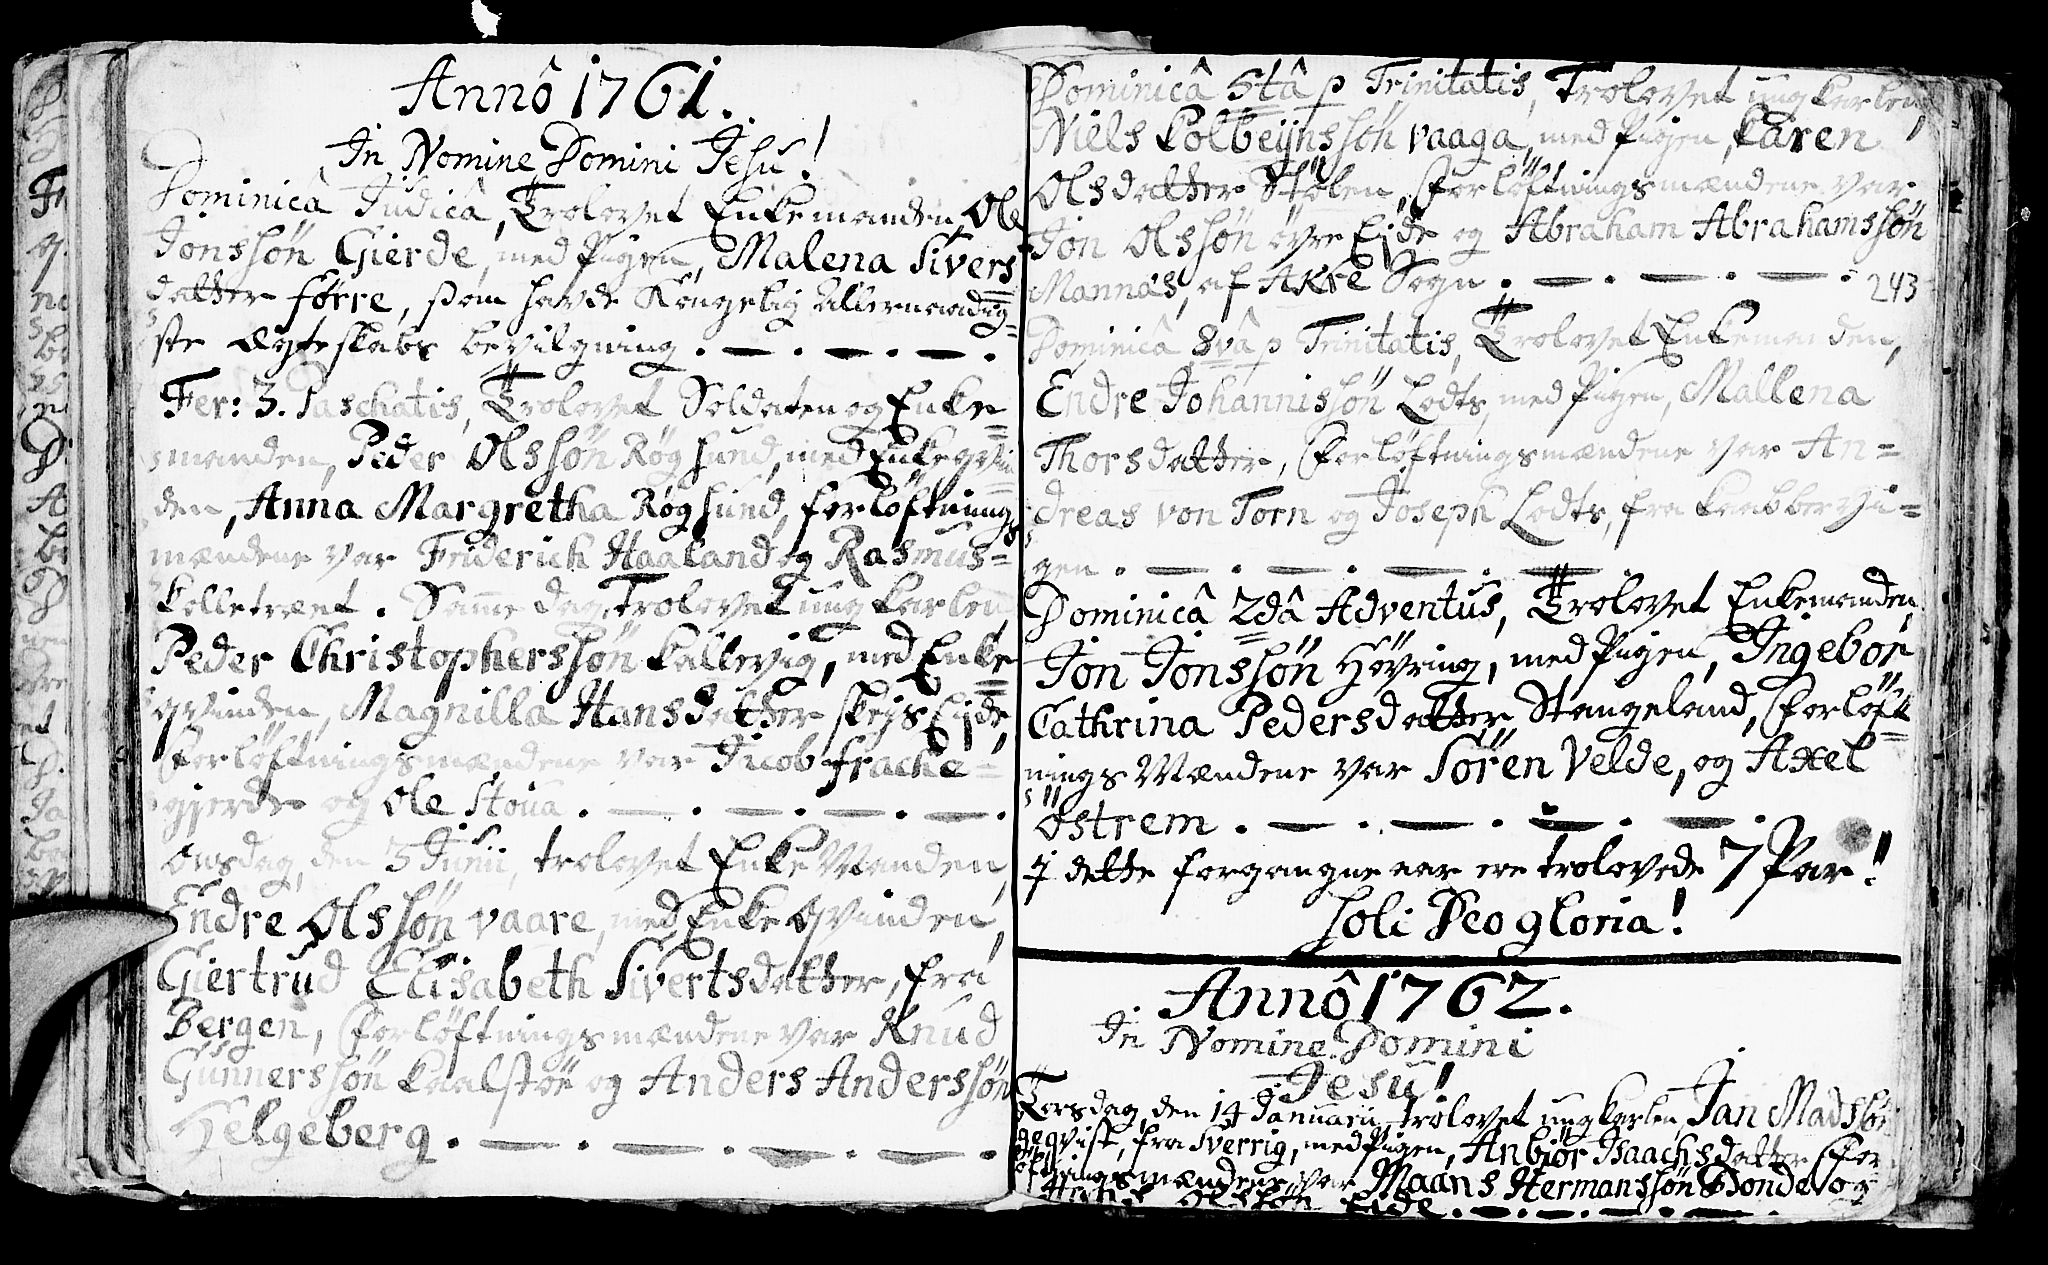 Annô 1761.
In Nomine Domini Jesu!
Dominicâ Judicâ, Trolovet Enkemanden, Ole
Jonssön Gierde, med Pigen, Malena Sivers=
datter förre, som havde Kongelig Allernaadig=
ste Ægteskabs bevilgning.
Fer: 3. Paschatis, Trolovet Soldaten og Enke=
manden, Peder Olssön Røgsund, med Enkeqvin=
den, Anna Margretha Røgsund, forløftnings
mændene var Friderich Haaland og Rasmus=
kolletræet. Samme dag, Trolovet ungkarlen,
Peder Christopherssön Kallevig, med Enke=
qvinden, Magnilla Hansdatter skejs Eide,
forløftningsmændene var Jacob frache=
gjerde og Ole Stoua.
Onsdag, den 3 Junii, trolovet EnkeManden,
Endre Olssön vaare, med EnkeQvinden,
Giertrud Elisabeth Sivertsdatter, fra
Bergen, forløftningsmændene var Knud
Gunnerssön Kaalstöe og Anders Anderssön
Helgeberg.
Dominicâ 5tâ p Trinitatis, Trolovet ungkarlen,
Niels Kolbeijnssön vaaga, med Pigen, Karen
Olsdatter Stölen, forløftningsmændene var
Jon Olssön övre Eide og Abraham Abrahamssön
Mannås, af Akre Sogn.
243
Dominicâ 8vâ p Trinitatis, Trolovet Enkemanden,
Endre Johannissön Lodts, med Pigen, Mallena
Thorsdatter, forløftningsmændene var An=
dreas von Torn og Joseph Lodts, fra kaabbervi=
gen.
Dominicâ 2dâ Adventus, Trolovet Enkemanden,
Jon Jonssön Hövring, med Pigen, Ingebor
Cathrina Pedersdatter Stangeland, forløft=
nings Mændene var Sören Velde, og Axel
Östrem.
I dette forgangne aar ere trolovede 7 Par!
Soli Deo gloria!
Annô 1762.
In Nomine Domini
Jesu!
Torsdag, den 14 Januarii, trolovet ungkarlen, Jan Madssön
deqvist, fra Sverrig, med Pigen, Anbiör Isaachsdatter for
løftningsmændene, var Maans Hermanssön Bonde og
Olssön Eide.